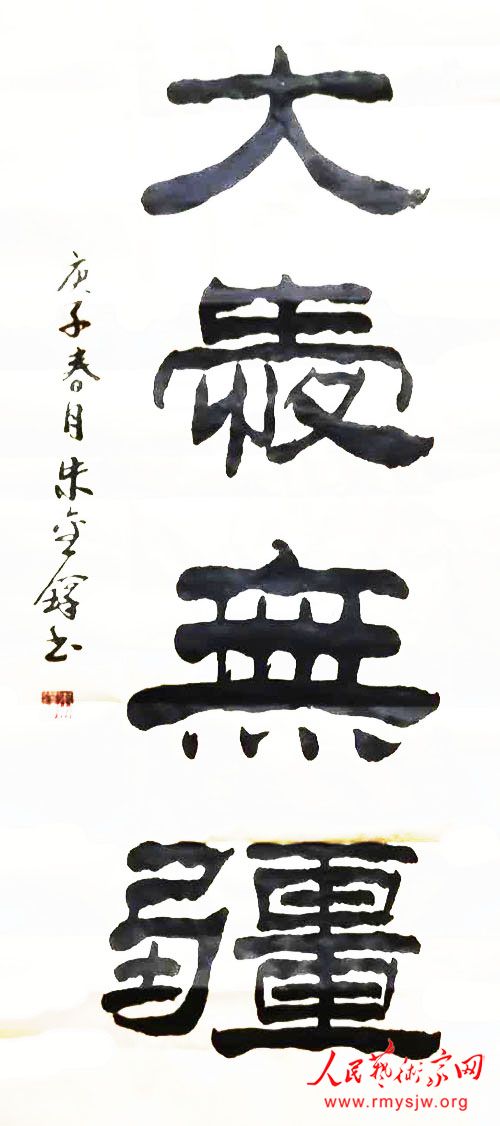 大愛無疆
庚子春月朱金鐸书
人民藝術家网
www.rmysjw.org